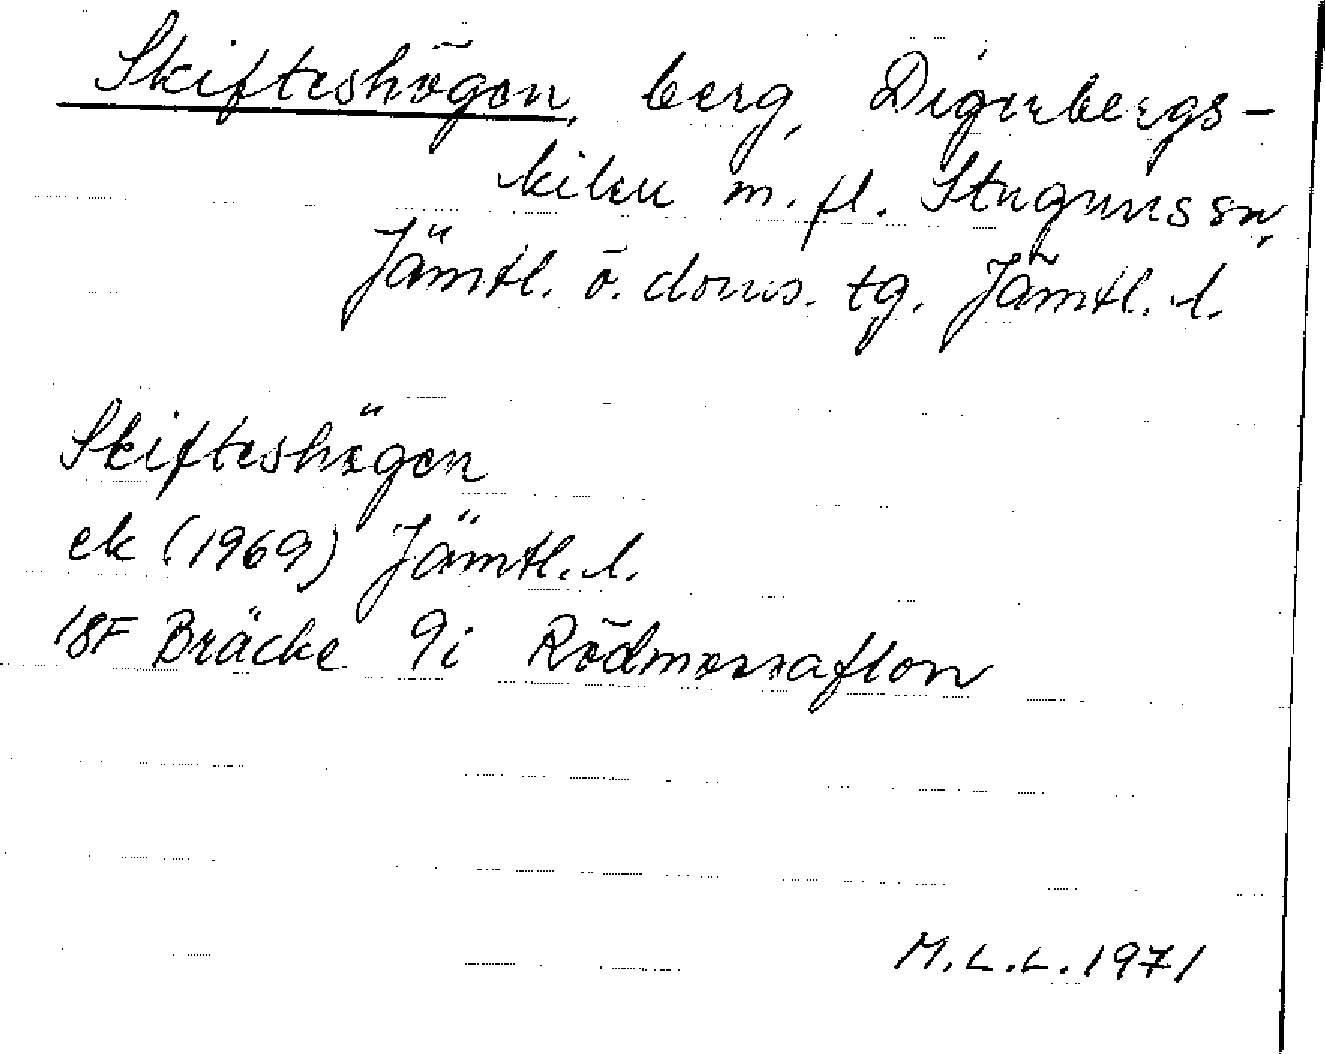 Skifteshögen, berg, Digerbergs-
kilen m.fl. Stuguns sn,
Jämtl. ö. doms. tg. Jämtl. l.
Skifteshögen
ek (1969) Jämtl. l.
18F Bräcke 9i Rödmossaflon
M.L.L. 1971